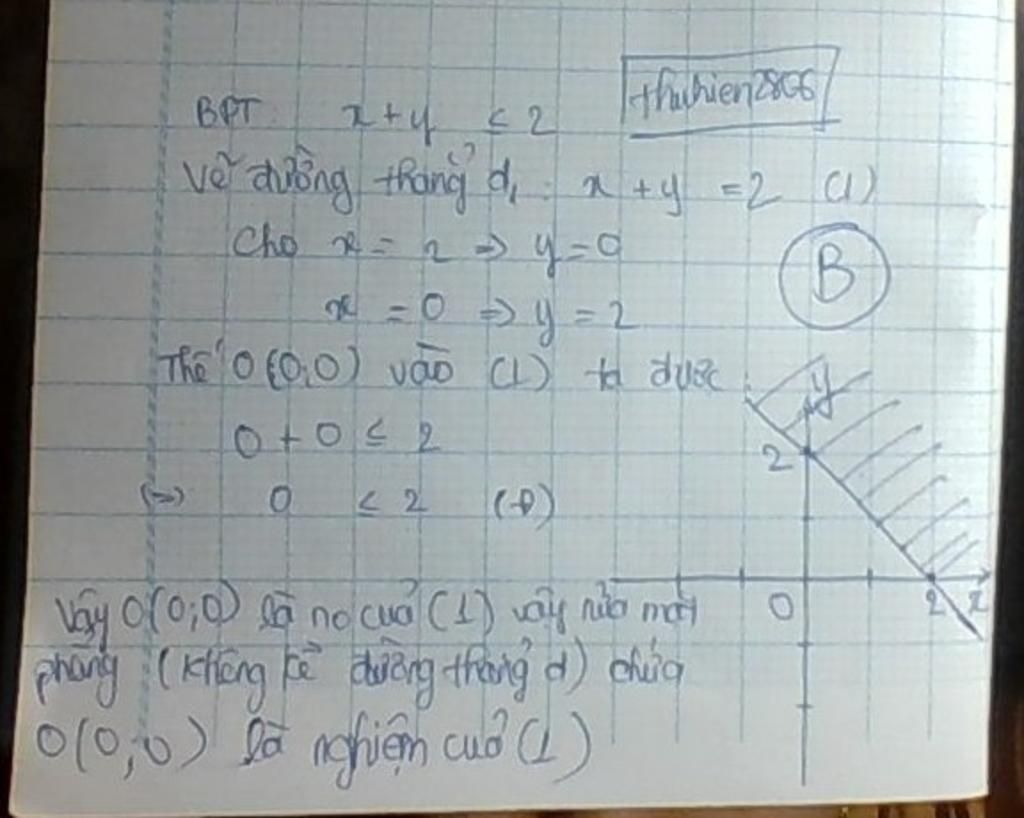 thuhien2806
BPT: x + y ≤ 2
Vẽ đường thẳng d₁ : x + y = 2 (1)
Cho x = 2 => y = 0
x = 0 => y = 2
B
Thế O(0;0) vào (1) ta được
0 + 0 ≤ 2
(=) 0 ≤ 2 (Đ)
y
2
O
2 x
Vậy O(0;0) là no của (1) vậy nửa mặt
phẳng (không kể đường thẳng d) chứa
O(0;0) là nghiệm của (1)